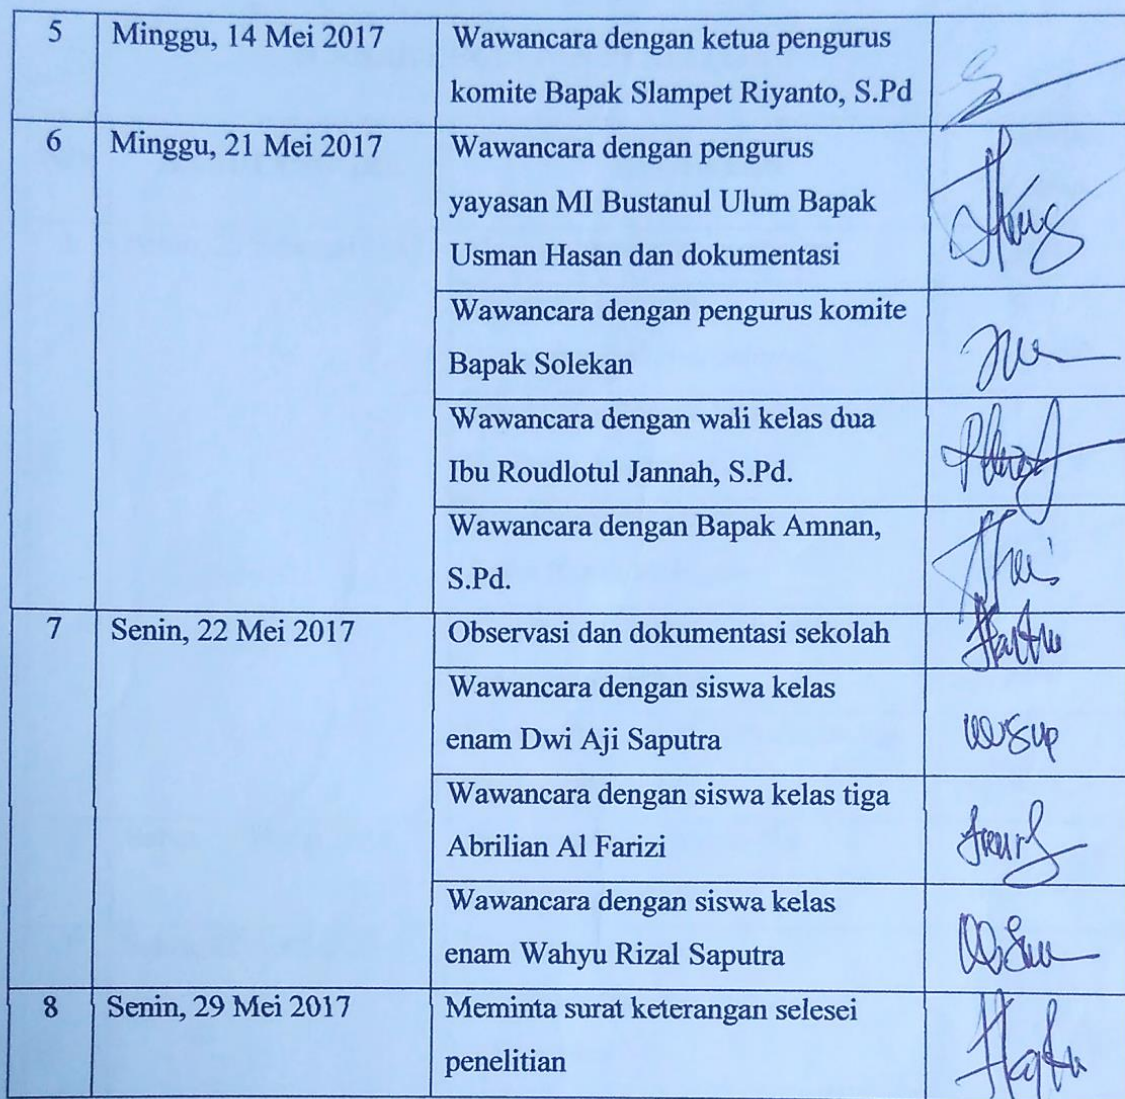 5 Minggu, 14 Mei 2017 Wawancara dengan ketua pengurus
komite Bapak Slampet Riyanto, S.Pd
6 Minggu, 21 Mei 2017 Wawancara dengan pengurus
yayasan MI Bustanul Ulum Bapak
Usman Hasan dan dokumentasi
Wawancara dengan pengurus komite
Bapak Solekan
Wawancara dengan wali kelas dua
Ibu Roudlotul Jannah, S.Pd.
Wawancara dengan Bapak Amnan,
S.Pd.
7 Senin, 22 Mei 2017 Observasi dan dokumentasi sekolah
Wawancara dengan siswa kelas
enam Dwi Aji Saputra
Wawancara dengan siswa kelas tiga
Abrilian Al Farizi
Wawancara dengan siswa kelas
enam Wahyu Rizal Saputra
8 Senin, 29 Mei 2017 Meminta surat keterangan selesei
penelitian